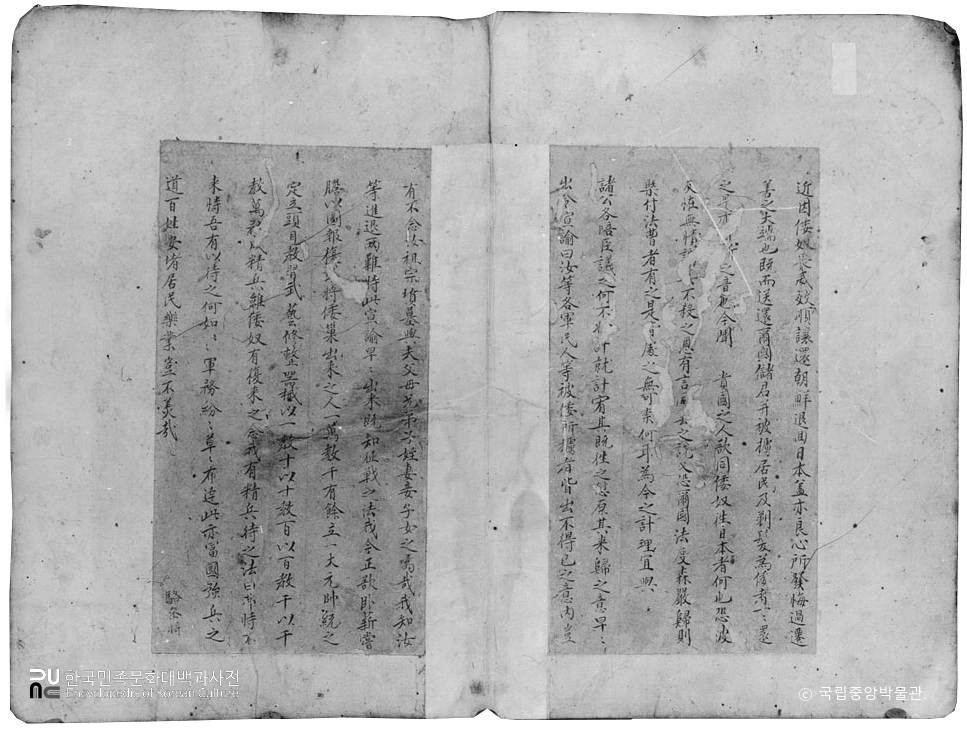 近因倭奴畏威效順讓還朝鮮退回日本盖亦良心所發悔過遷
善之失端也既而送還爾國儲君并被擄居民及剃髮為倭者一一還
之 之音也今聞 貴國之人欲同倭奴往日本者何也恐彼
反惟無情 不殺之恩有言 去之說又恐爾國法度森嚴歸則
舉付法曹者有之是皆 之無可柰何耳為今之計理宜與
諸公各陪臣議之何不 計就計宥其既往之 原其来歸之意早早
出令宣諭曰汝等各軍民人等被倭所擄者皆出不得已之意内豈
有不念以祖宗墳墓與夫父母兄弟子姪妻妾子女之 哉我知汝
等進退兩難特此宣諭早早出来既知征戰之法我今正欲卧薪嘗
膽以圖報 将倭巢出来之人一萬數千有餘立一大元帥統之
定立頭目教習武藝修整器械以一教十以十教百以百教千以千
教萬 精兵雖倭奴有復来之念我有精兵待之法曰 恃不
来恃吾有以待之何如如軍務紛紛草草布達此亦富國強兵之
道百姓安堵居民樂業豈不美哉
駱叅將
한국민족문화대백과사전
Encyclopedia of Korean Culture
© 국립중앙박물관